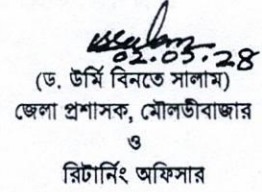 02.05.24
(ড. উর্মি বিনতে সালাম)
জেলা প্রশাসক, মৌলভীবাজার
ও
রিটার্নিং অফিসার